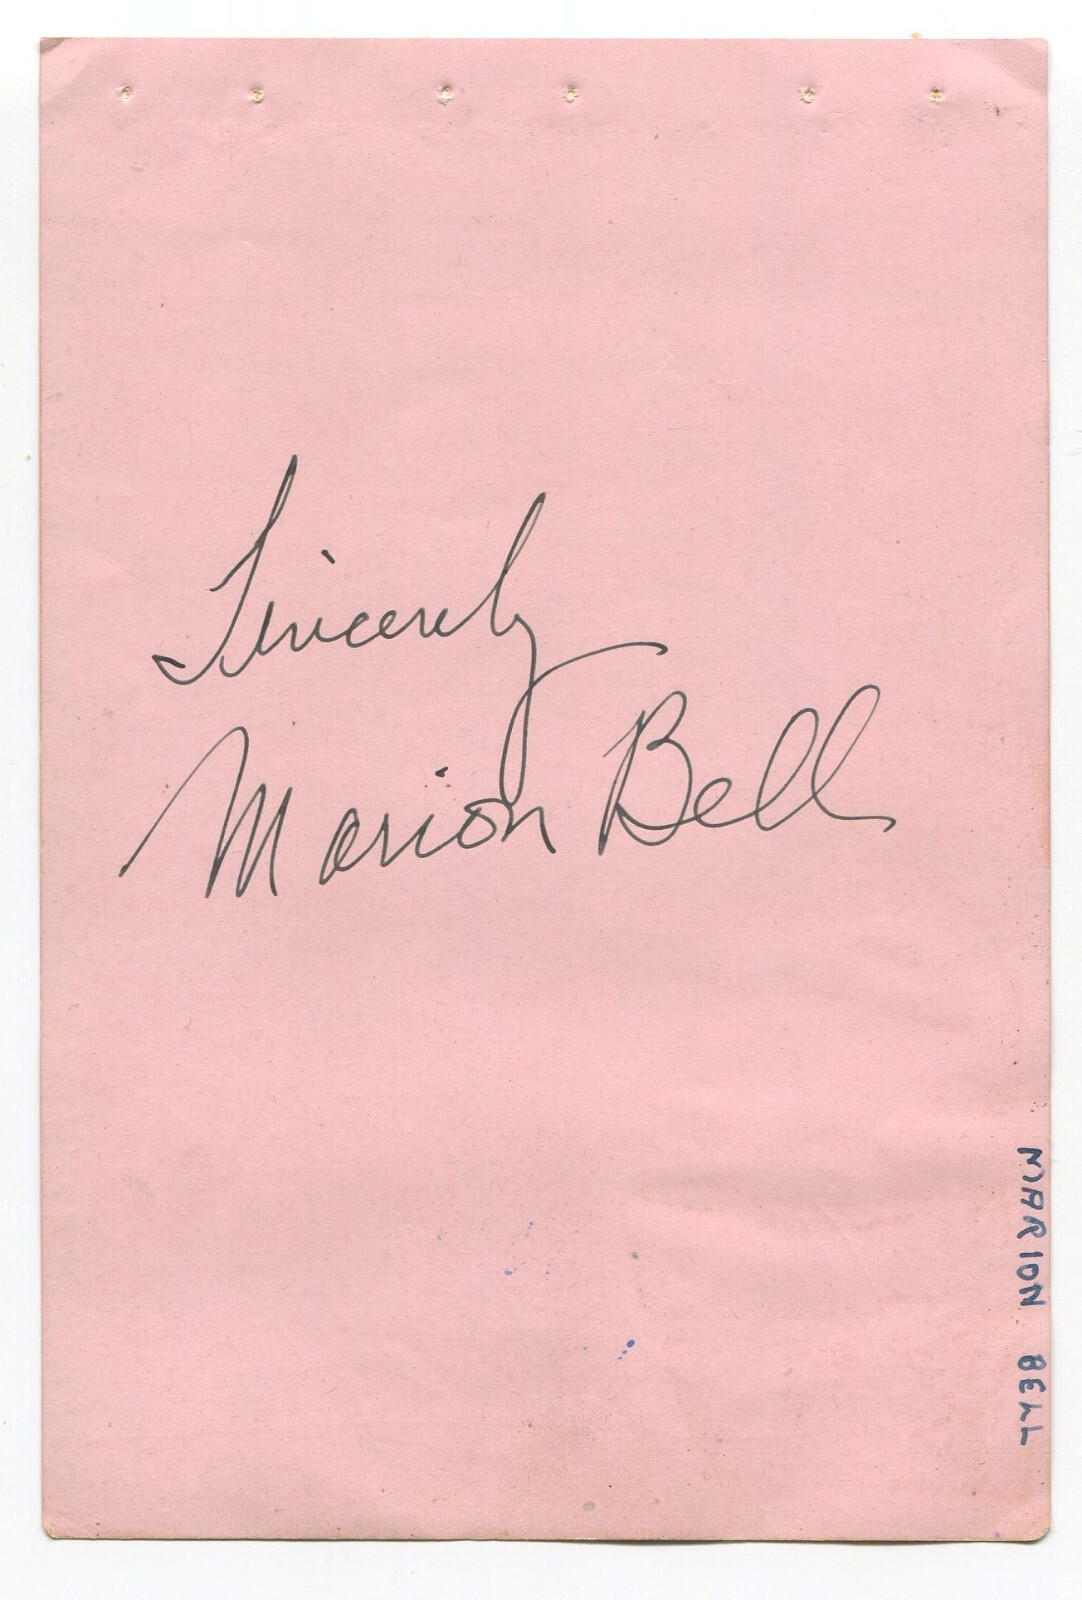 Sincerely
Marion Bell
MARION BELL